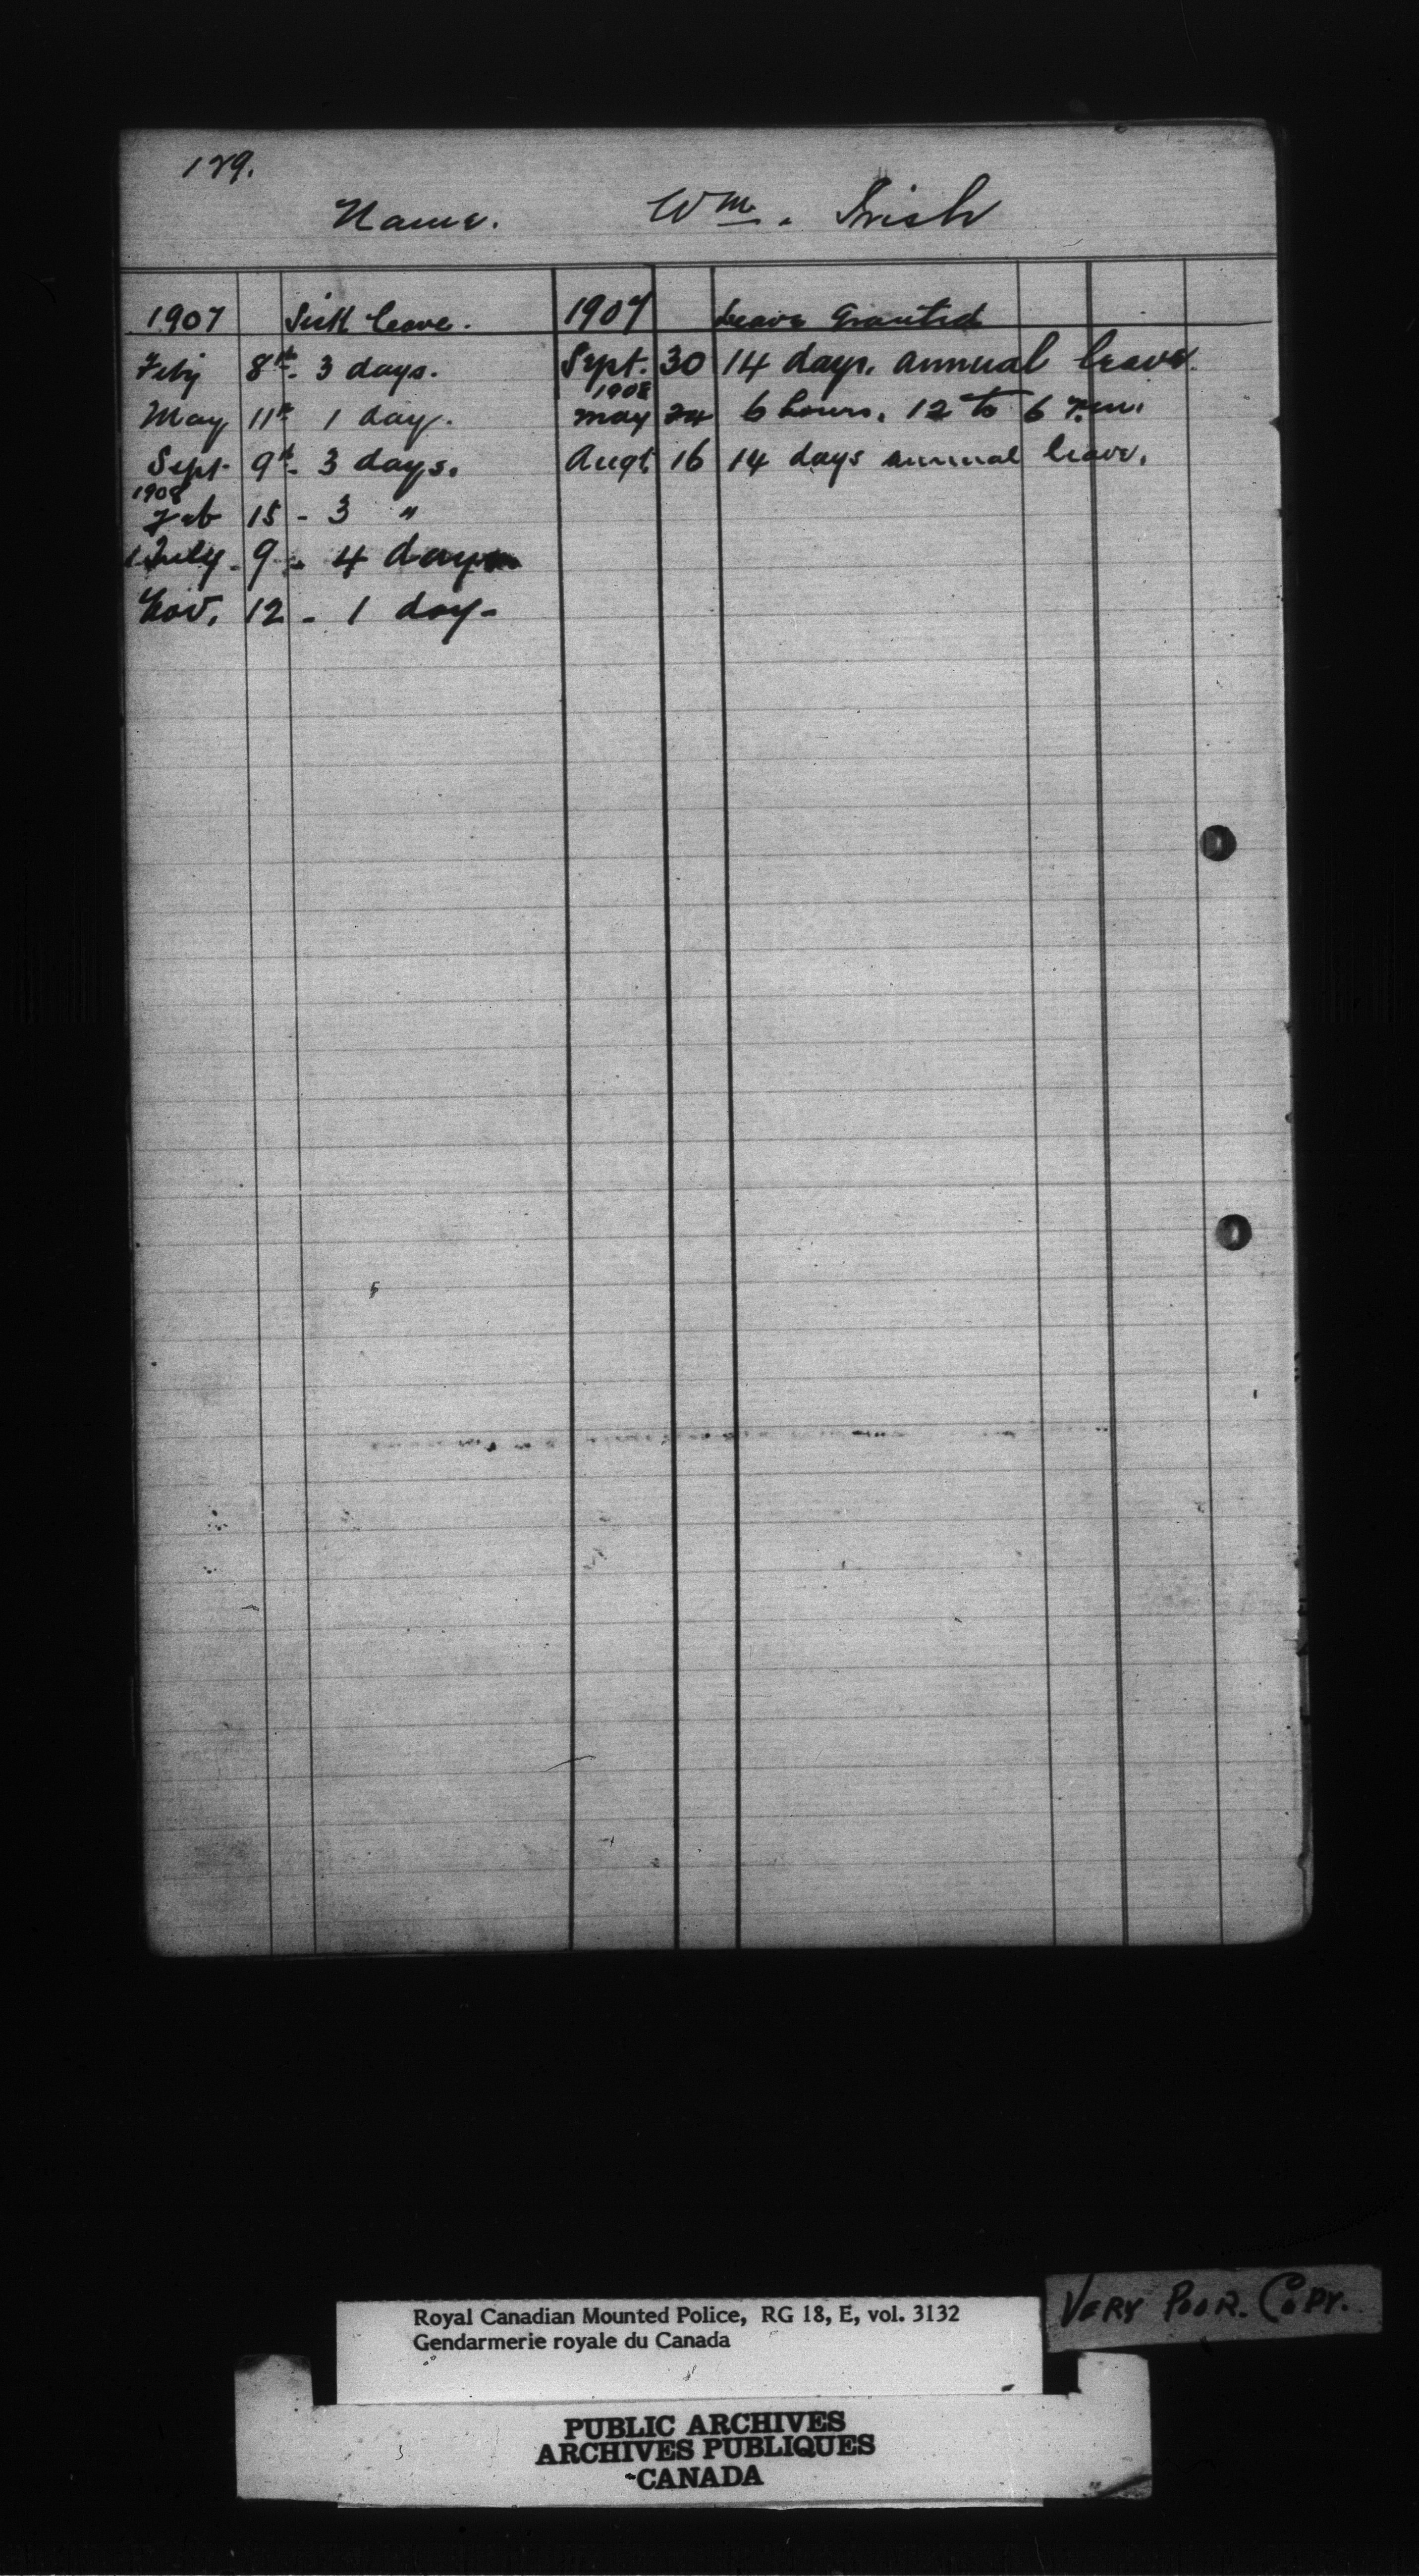 129.
Name. Wm. Irish
1907 Sick leave. 1907 Leave Granted
Feby 8th - 3 days. Sept. 30 14 days. annual leave.
1908
May 11th 1 day. May 24 6 hours. 12 to 6 p.m.
Sept. 9th - 3 days. Augt. 16 14 days annual leave.
1908
Feb 15 - 3 "
July - 9 - 4 days
Nov. 12 - 1 day -
Royal Canadian Mounted Police, RG 18, E, vol. 3132
Gendarmerie royale du Canada
VERY POOR. COPY.
PUBLIC ARCHIVES
ARCHIVES PUBLIQUES
CANADA